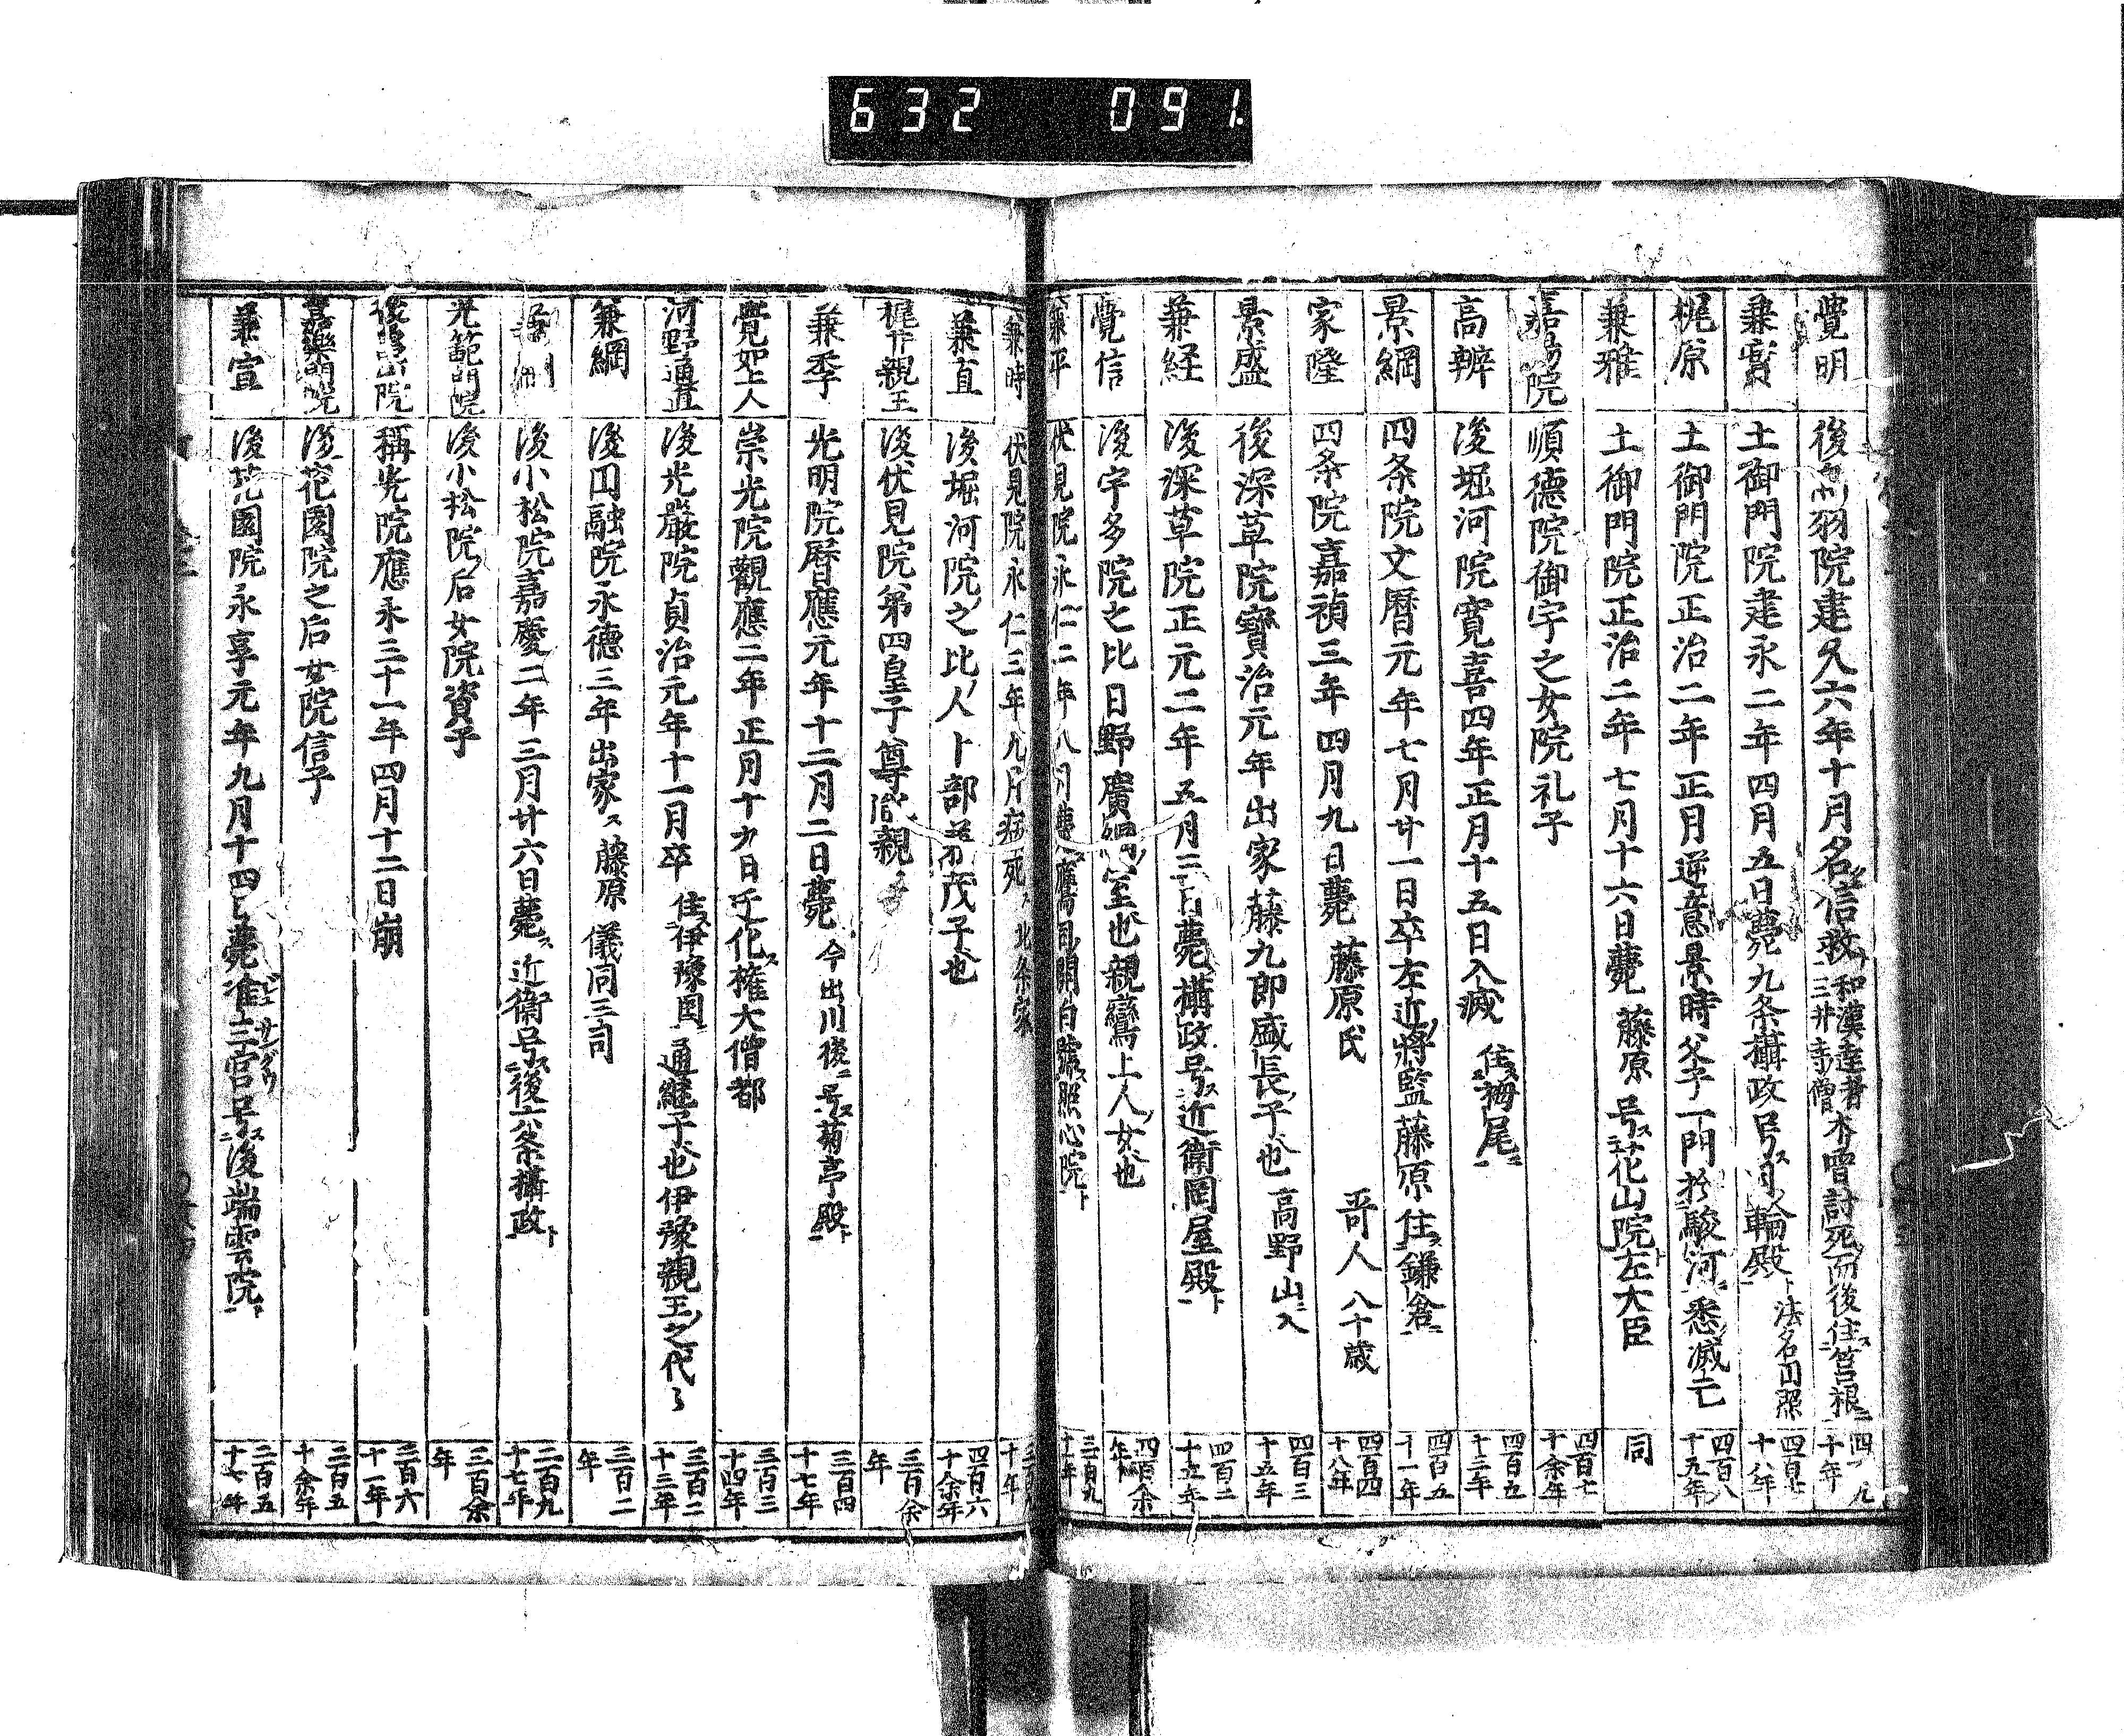 632 091.
覺明 後鳥羽院建久六年十月名信救ト 和漢達者 三井寺僧 木曽討死ノ而後住ス筥根ニ 十年
兼實 土御門院建永二年四月五日薨九条攝政号ス月ノ輪殿ト 法名円照 四百七十八年
梶原 土御門院正治二年正月逆意景時父子一門於駿河ニ悉滅亡 四百八十九年
兼雅 土御門院正治二年七月十六日薨 藤原 号ス花山院左大臣ト 同
嘉陽院 順德院御宇之女院礼子 四百七十余年
高辨 後堀河院寛喜四年正月十五日入寂 住ス栂尾ニ 四百五十三年
景綱 四条院文暦元年七月廿一日卒左近將監藤原住ス鎌倉ニ 四百五十一年
家隆 四条院嘉禎三年四月九日薨 藤原氏 哥人 八十歳 四百四十八年
景盛 後深草院寶治元年出家藤九郎盛長ノ子也 高野山ニ入 四百三十五年
兼経 後深草院正元二年五月三日薨攝政号ス近衛岡屋殿ト 四百二十五年
覺信 後宇多院之比日野廣綱ノ室也親鸞上人ノ女也 四百余年
兼平 伏見院永仁二年八月薨ス鷹司ノ関白號ス照心院ト 三百九十一年
兼時 伏見院永仁三年九月病死ス 北条家 十年
兼直 後堀河院ノ之比ノ人卜部 茂子也 四百六十余年
梶井親王 後伏見院第四皇子尊 親 三百余年
兼季 光明院暦應元年十二月二日薨 今出川後ニ号ス菊亭殿ト 三百四十七年
覺如上人 崇光院觀應二年正月十九日迁化ス權大僧都 三百三十四年
河野通直 後光嚴院貞治元年十一月卒 住ス伊豫国ニ 通継子也伊豫親王ノ之代々 三百二十三年
兼綱 後円融院永德三年出家ス 藤原 儀同三司 三百二年
後小松院嘉慶二年三月廿六日薨ス 近衛号ス後六条攝政ト 二百九十七年
光範門院 後小松院ノ后女院資子 三百余年
稱光院應永三十一年四月十二日崩 二百六十一年
嘉樂門院 後花園院之后女院信子 二百五十余年
兼宣 後花園院永享元年九月十四日薨准三宮号ス後端雲院ト 二百五十七年